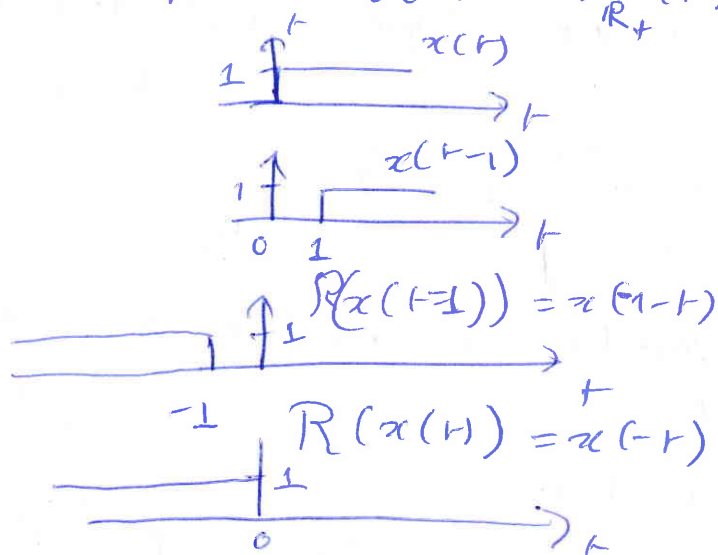 ℝ₊
t
x(t)
1
t
x(t-1)
1
0 1
t
R(x(t-1)) = x(-1-t)
1
-1
t
R(x(t)) = x(-t)
1
0
t